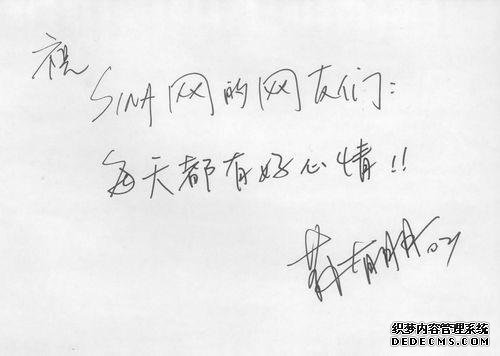 祝
SINA网的网友们:
每天都有好心情!!
织梦内容管理系统
DEDECMS.COM